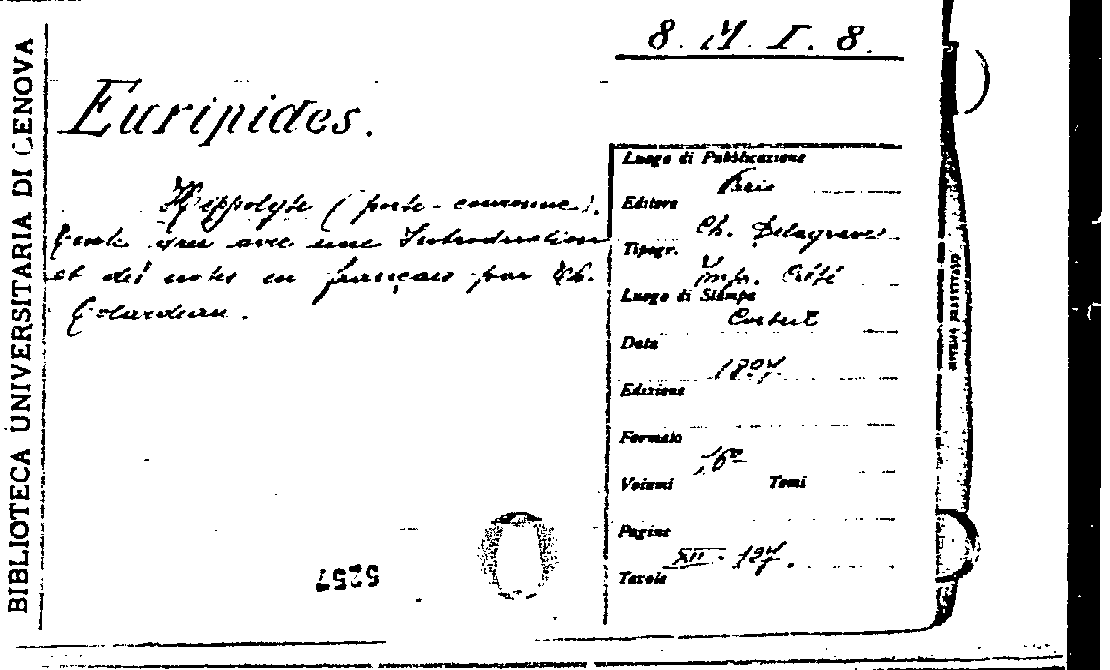 BIBLIOTECA UNIVERSITARIA DI GENOVA
8. M. I. 8.
Euripides.
Hippolyte (porte-couronne).
avec une Introduction
et des notes en français par Th.
Colardeau.
Luogo di Pubblicazione
Paris
Editore
Ch. Delagrave
Tipogr.
Imp. Crété
Luogo di Stampa
Corbeil
Data
Edizione
Formato
16º
Volumi Tomi
Pagine
XII - 127.
Tavole
5257